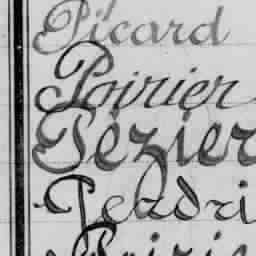 Picard
Poirier
Pézier
Perdri